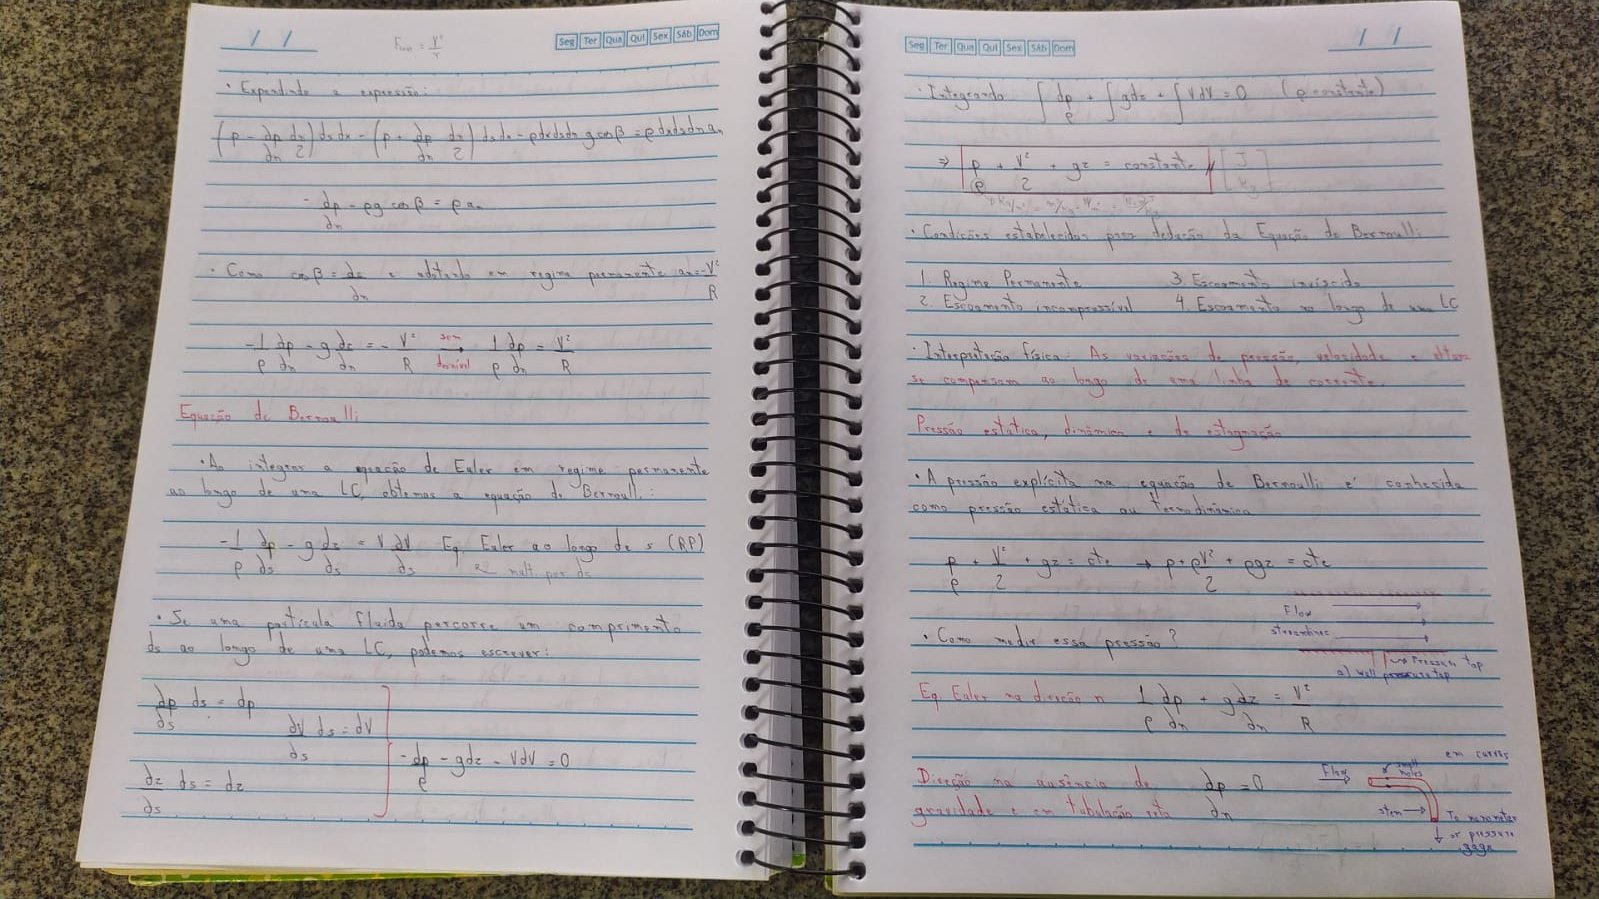 / /
V²
Seg Ter Qua Qui Sex Sáb Dom
• Expandindo a expressão:
(p - ∂p/∂n dn/2) ds dx - (p + ∂p/∂n dn/2) ds dx - ρ dx ds dn g cos β = ρ dx ds dn an
- ∂p/∂n - ρg cos β = ρ an
• Como cos β = ∂z/∂n e adotando em regime permanente an = -V²/R
-1/ρ ∂p/∂n - g ∂z/∂n = - V²/R sem desnível → 1/ρ ∂p/∂n = V²/R
Equação de Bernoulli
• Ao integrar a equação de Euler em regime permanente
ao longo de uma LC, obtemos a equação de Bernoulli:
-1/ρ ∂p/∂s - g ∂z/∂s = V ∂V/∂s Eq. Euler ao longo de s (RP)
mult. por ds
• Se uma partícula fluida percorre um comprimento
ds ao longo de uma LC, podemos escrever:
∂p/∂s ds = dp
∂V/∂s ds = dV
- dp/ρ - gdz - VdV = 0
∂z/∂s ds = dz
Seg Ter Qua Qui Sex Sáb Dom
/ /
• Integrando ∫ dp/ρ + ∫ gdz + ∫ VdV = 0 (ρ constante)
⇒ p/ρ + V²/2 + gz = constante // [J/Kg]
• Condições estabelecidas para dedução da Equação de Bernoulli
1. Regime Permanente 3. Escoamento invíscido
2. Escoamento incompressível 4. Escoamento ao longo de uma LC
• Interpretação física: As variações de pressão, velocidade e altura
se compensam ao longo de uma linha de corrente.
Pressão estática, dinâmica e de estagnação
• A pressão explícita na equação de Bernoulli é conhecida
como pressão estática ou termodinâmica
p/ρ + V²/2 + gz = cte → p + ρV²/2 + ρgz = cte
Flow
streamlines
• Como medir essa pressão?
Pressure tap
a) wall pressure tap
Eq. Euler na direção n 1/ρ ∂p/∂n + g ∂z/∂n = V²/R
em curvas
Direção na ausência de ∂p/∂n = 0
gravidade e em tubulação reta
Flow
small holes
stem
To manometer
or pressure
gage